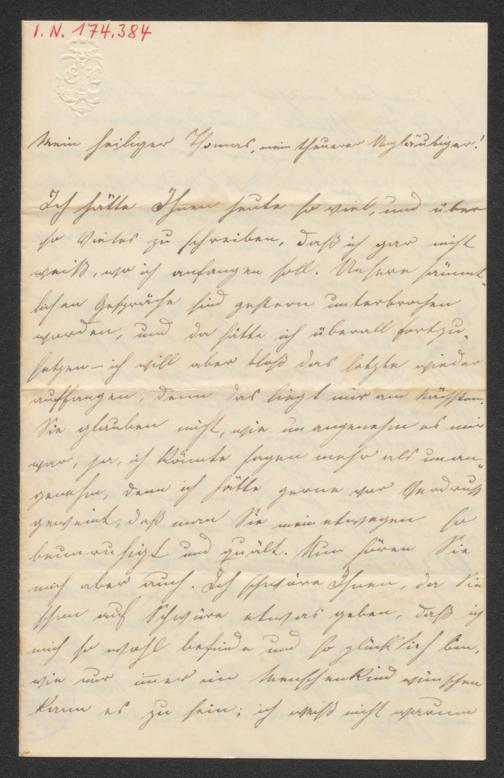 I. N. 174.384
Mein heiliger Thomas, mein theurer Ungläubiger!
Ich hätte Ihnen heute so viel, und über
so Vieles zu schreiben, daß ich gar nicht
weiß, wo ich anfangen soll. Unsere sämmt-
lichen Gespräche sind gestern unterbrochen
worden, und da hätte ich überall fortzu-
setzen – ich will aber bloß das letzte wieder
auffangen, denn das liegt mir am Nächsten.
Sie glauben nicht, wie unangenehm es mir
war, ja, ich könnte sagen mehr als unan-
genehm, denn ich hätte gerne vor Verdruß
geweint, daß man Sie meinetwegen so
beunruhigt und quält. Nun hören Sie
mich aber auch. Ich schwöre Ihnen, da Sie
schon auf Schwüre etwas geben, daß ich
mich so wohl befinde und so glücklich bin,
wie nur immer ein Menschenkind wünschen
kann es zu sein; ich weiß nicht warum